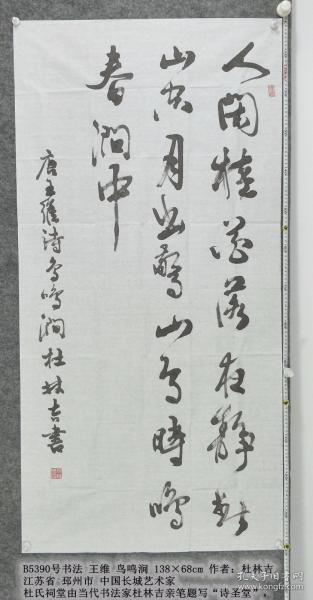 人閑桂花落夜靜春
山空月出驚山鳥時鳴
春澗中
唐王維詩鳥鳴澗杜林吉書
B5390号书法 王维 鸟鸣涧 138×68cm 作者：杜林吉
江苏省 邳州市 中国长城艺术家
杜氏祠堂由当代书法家杜林吉亲笔题写“诗圣堂”